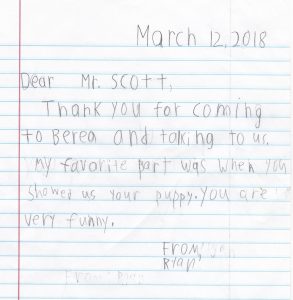 March 12, 2018
Dear Mr. Scott,
Thank you for coming
to Berea and talking to us.
My favorite part was when you
showed us your puppy. You are
very funny.
From,
Ryan
From: Ryan